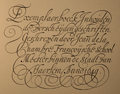 Exemplaer-boeck Inhouden
de Verscheyden geschriften
Geschreven door Jean de la
Chambre Francoysche School
Meester binnen de Stadt van
Haerlem, Anno